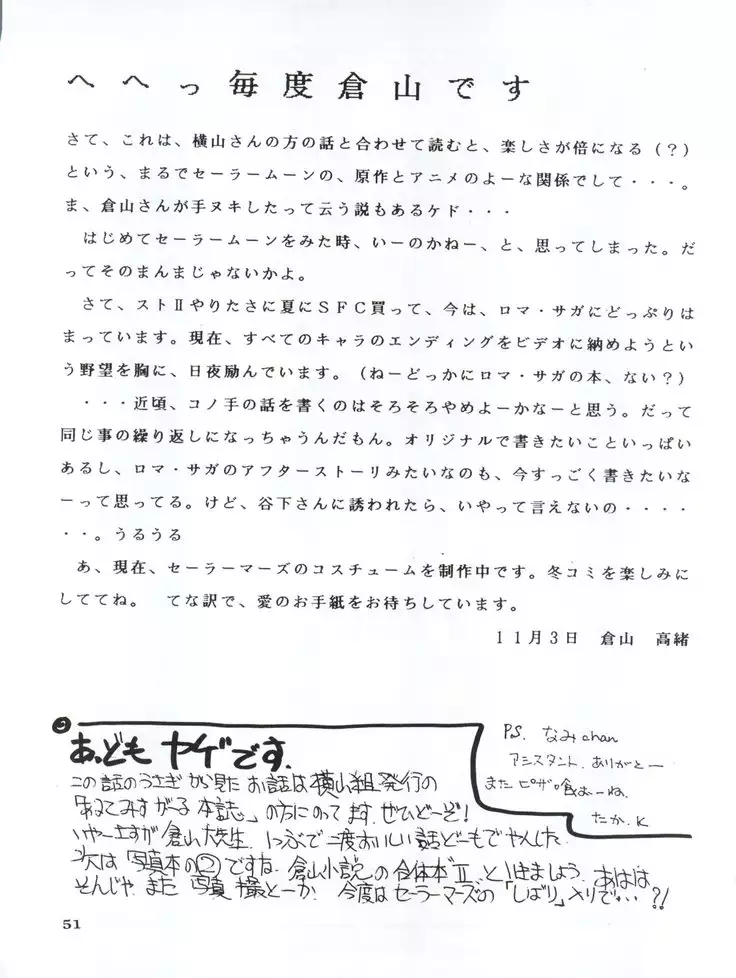 へへっ毎度倉山です
さて、これは、横山さんの方の話と合わせて読むと、楽しさが倍になる（？）
という、まるでセーラームーンの、原作とアニメのよーな関係でして・・・。
ま、倉山さんが手ヌキしたって云う説もあるケド・・・
はじめてセーラームーンをみた時、いーのかねー、と、思ってしまった。だ
ってそのまんまじゃないかよ。
さて、ストⅡやりたさに夏にＳＦＣ買って、今は、ロマ・サガにどっぷりは
まっています。現在、すべてのキャラのエンディングをビデオに納めようとい
う野望を胸に、日夜励んでいます。（ねーどっかにロマ・サガの本、ない？）
・・・近頃、コノ手の話を書くのはそろそろやめよーかなーと思う。だって
同じ事の繰り返しになっちゃうんだもん。オリジナルで書きたいこといっぱい
あるし、ロマ・サガのアフターストーリみたいなのも、今すっごく書きたいな
ーって思ってる。けど、谷下さんに誘われたら、いやって言えないの・・・・
・・。うるうる
あ、現在、セーラーマーズのコスチュームを制作中です。冬コミを楽しみに
しててね。　てな訳で、愛のお手紙をお待ちしています。
１１月３日　倉山　高緒
あ、ども ヤゲです.
この話のうさぎから見たお話は横山組発行の
みすがる本誌」の方にのってます ぜひどーぞ!
いやーさすが倉山大先生 1つぶで二度おいしい話どーもでやんした
次は「写真本の②」ですな. 倉山小説の合体本"Ⅱ"といきましょう. あはは
そんじゃ また 写真 撮とーか. 今度はセーラーマーズの「しばり」入りで…?!
P.S. なみchan
アシスタント. ありがとー
また ピザ 喰おーね.
たか. K
51